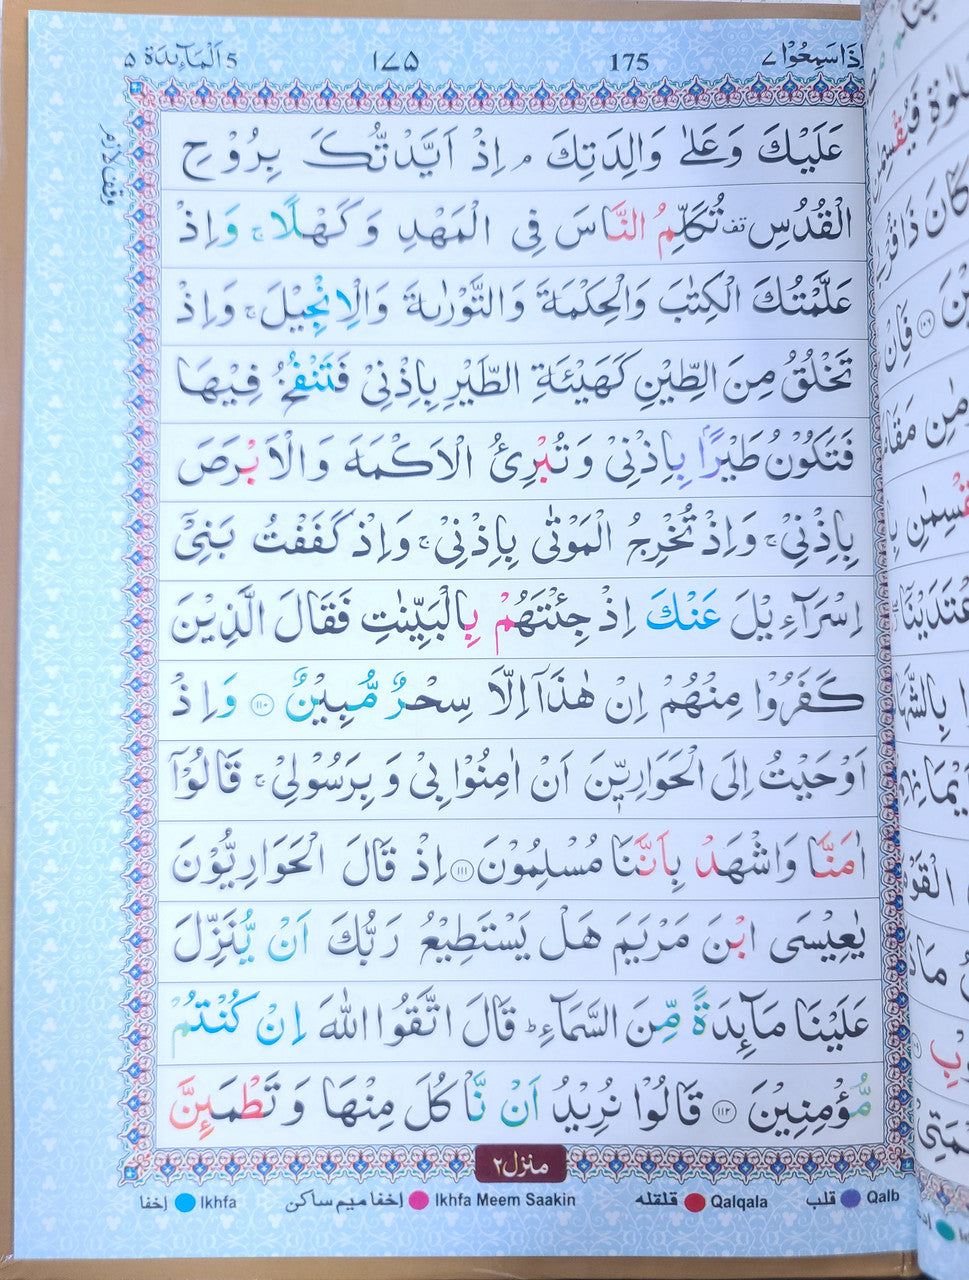 اِذَا سَمِعُوْا ٧ 175 ١٧٥ 5 اَلْمَآئِدَة ٥
عَلَيْكَ وَعَلٰى وَالِدَتِكَ ۘ اِذْ اَيَّدْتُّكَ بِرُوْحِ
الْقُدُسِ تف تُكَلِّمُ النَّاسَ فِى الْمَهْدِ وَكَهْلًا ۚ وَاِذْ
عَلَّمْتُكَ الْكِتٰبَ وَالْحِكْمَةَ وَالتَّوْرٰىةَ وَالْاِنْجِيْلَ ۚ وَاِذْ
تَخْلُقُ مِنَ الطِّيْنِ كَهَيْئَةِ الطَّيْرِ بِاِذْنِىْ فَتَنْفُخُ فِيْهَا
فَتَكُوْنُ طَيْرًۢا بِاِذْنِىْ وَتُبْرِئُ الْاَكْمَهَ وَالْاَبْرَصَ
بِاِذْنِىْ ۚ وَاِذْ تُخْرِجُ الْمَوْتٰى بِاِذْنِىْ ۚ وَاِذْ كَفَفْتُ بَنِىْۤ
اِسْرَآءِيْلَ عَنْكَ اِذْ جِئْتَهُمْ بِالْبَيِّنٰتِ فَقَالَ الَّذِيْنَ
كَفَرُوْا مِنْهُمْ اِنْ هٰذَاۤ اِلَّا سِحْرٌ مُّبِيْنٌ ١١٠ وَاِذْ
اَوْحَيْتُ اِلَى الْحَوَارِيّٖنَ اَنْ اٰمِنُوْا بِىْ وَبِرَسُوْلِىْ ۚ قَالُوْۤا
اٰمَنَّا وَاشْهَدْ بِاَنَّنَا مُسْلِمُوْنَ ١١١ اِذْ قَالَ الْحَوَارِيُّوْنَ
يٰعِيْسَى ابْنَ مَرْيَمَ هَلْ يَسْتَطِيْعُ رَبُّكَ اَنْ يُّنَزِّلَ
عَلَيْنَا مَآئِدَةً مِّنَ السَّمَآءِ ؕ قَالَ اتَّقُوا اللّٰهَ اِنْ كُنْتُمْ
مُّؤْمِنِيْنَ ١١٢ قَالُوْا نُرِيْدُ اَنْ نَّاْكُلَ مِنْهَا وَتَطْمَئِنَّ
منزل ٢
Qalb قلب Qalqala قلقله Ikhfa Meem Saakin اخفا ميم ساكن Ikhfa اخفا